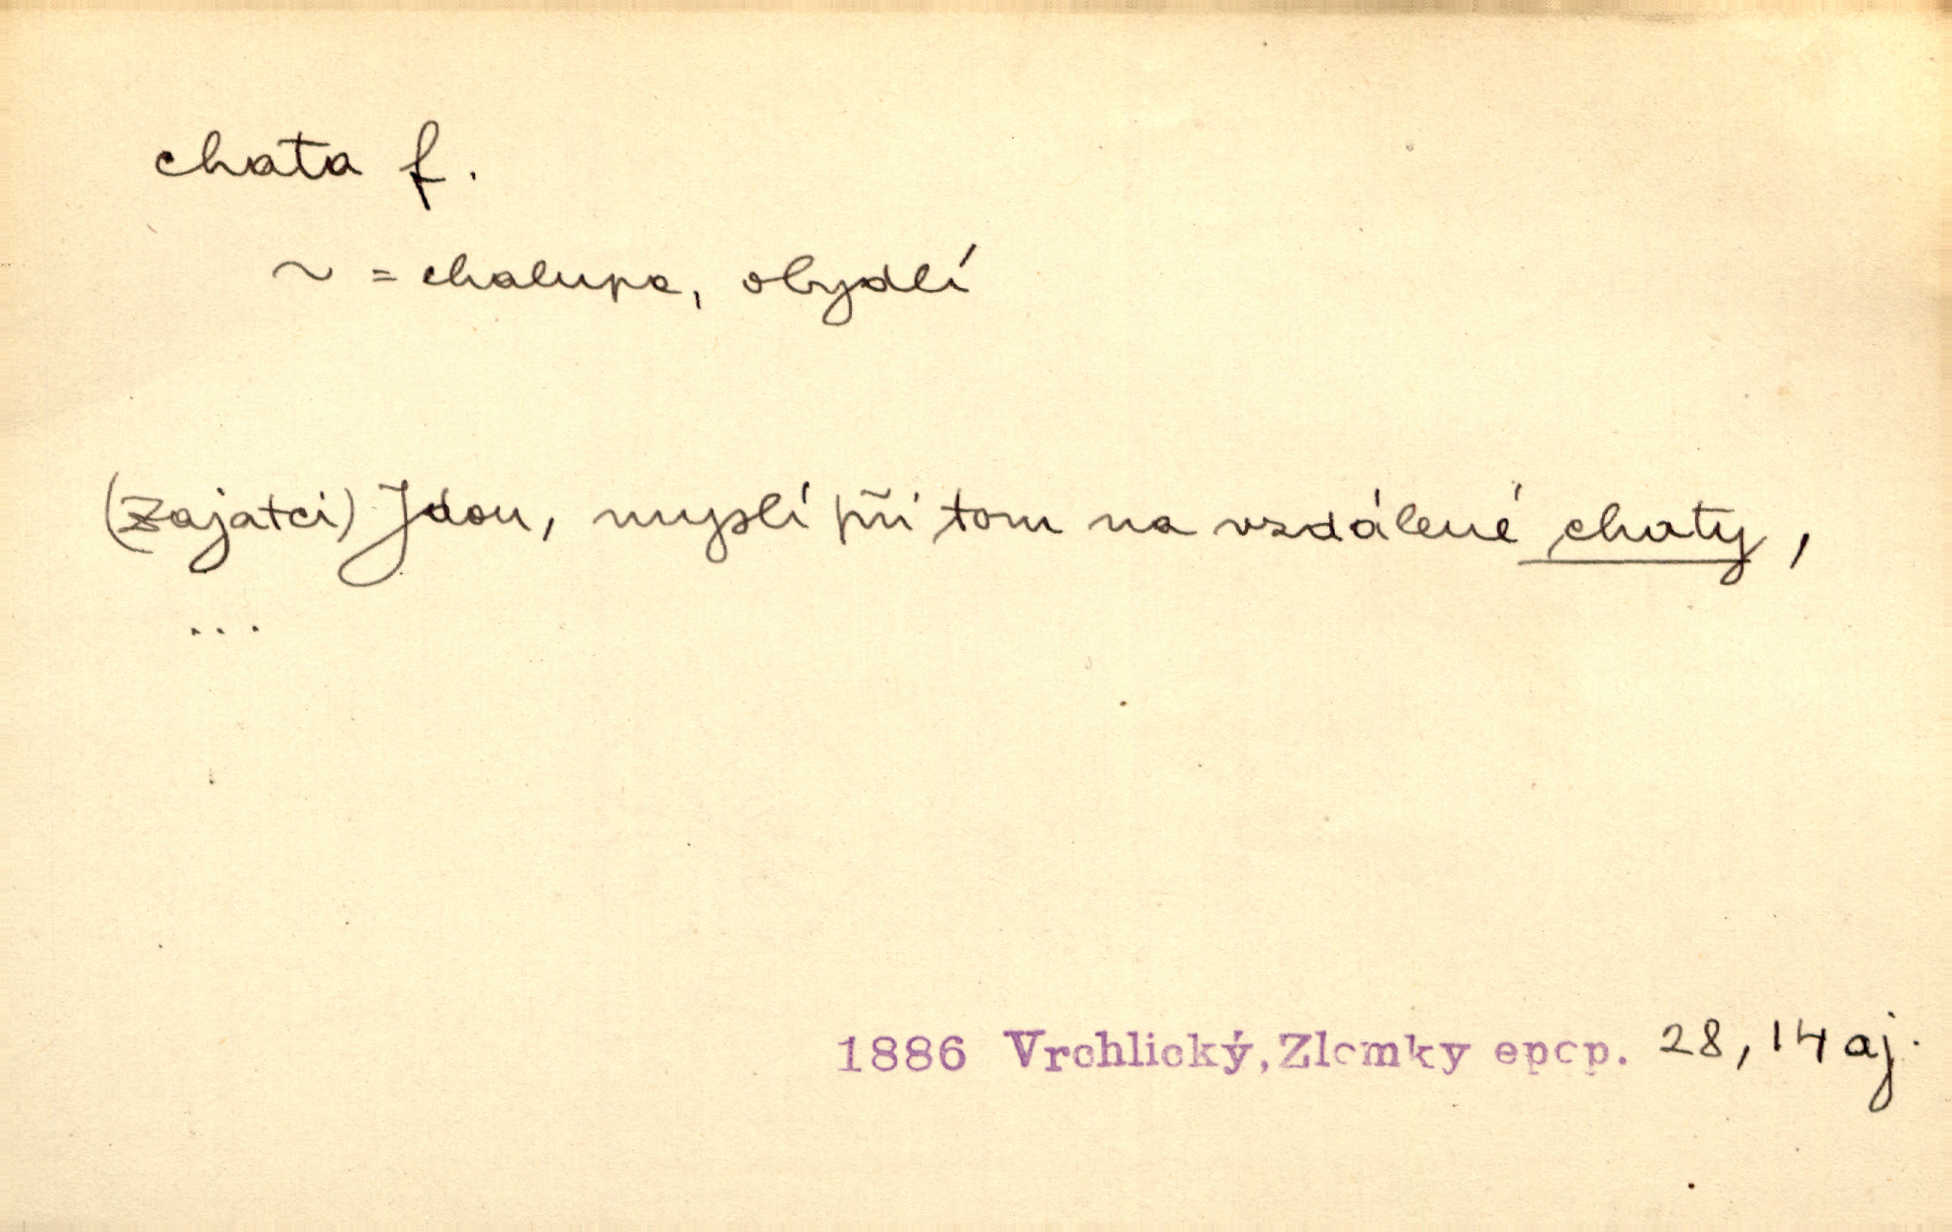 chata f.
~ = chalupa, obydlí
(zajatci) Jdou, myslí při tom na vzdálené chaty,
...
1886 Vrchlický, Zlomky epop. 28, 14 aj.